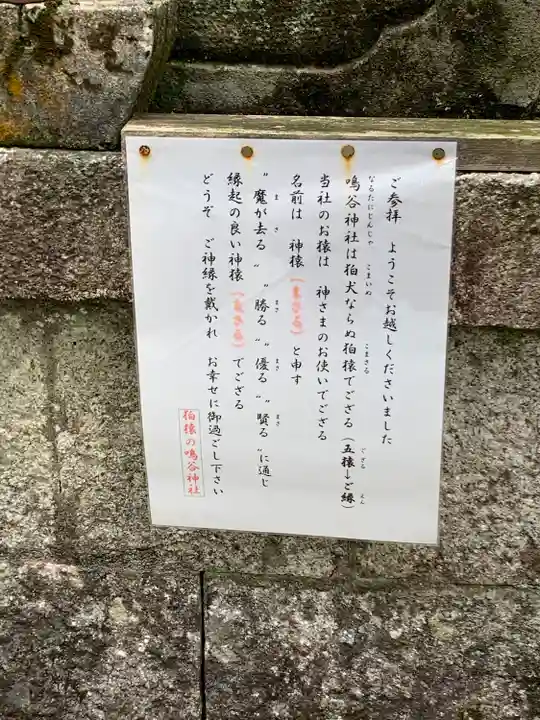 ご参拝 ようこそお越しくださいました
鳴谷神社は狛犬ならぬ狛猿でござる（五猿→ご縁）
なるたにじんじゃ こまいぬ こまさる ござる えん
当社のお猿は 神さまのお使いでござる
名前は 神猿（まさる）と申す
〝魔が去る〟〝勝る〟〝優る〟〝賢る〟に通じ
ま さ まさ まさ まさ
縁起の良い神猿（まさる）でござる
どうぞ ご神縁を戴かれ お幸せに御過ごし下さい
狛猿の鳴谷神社